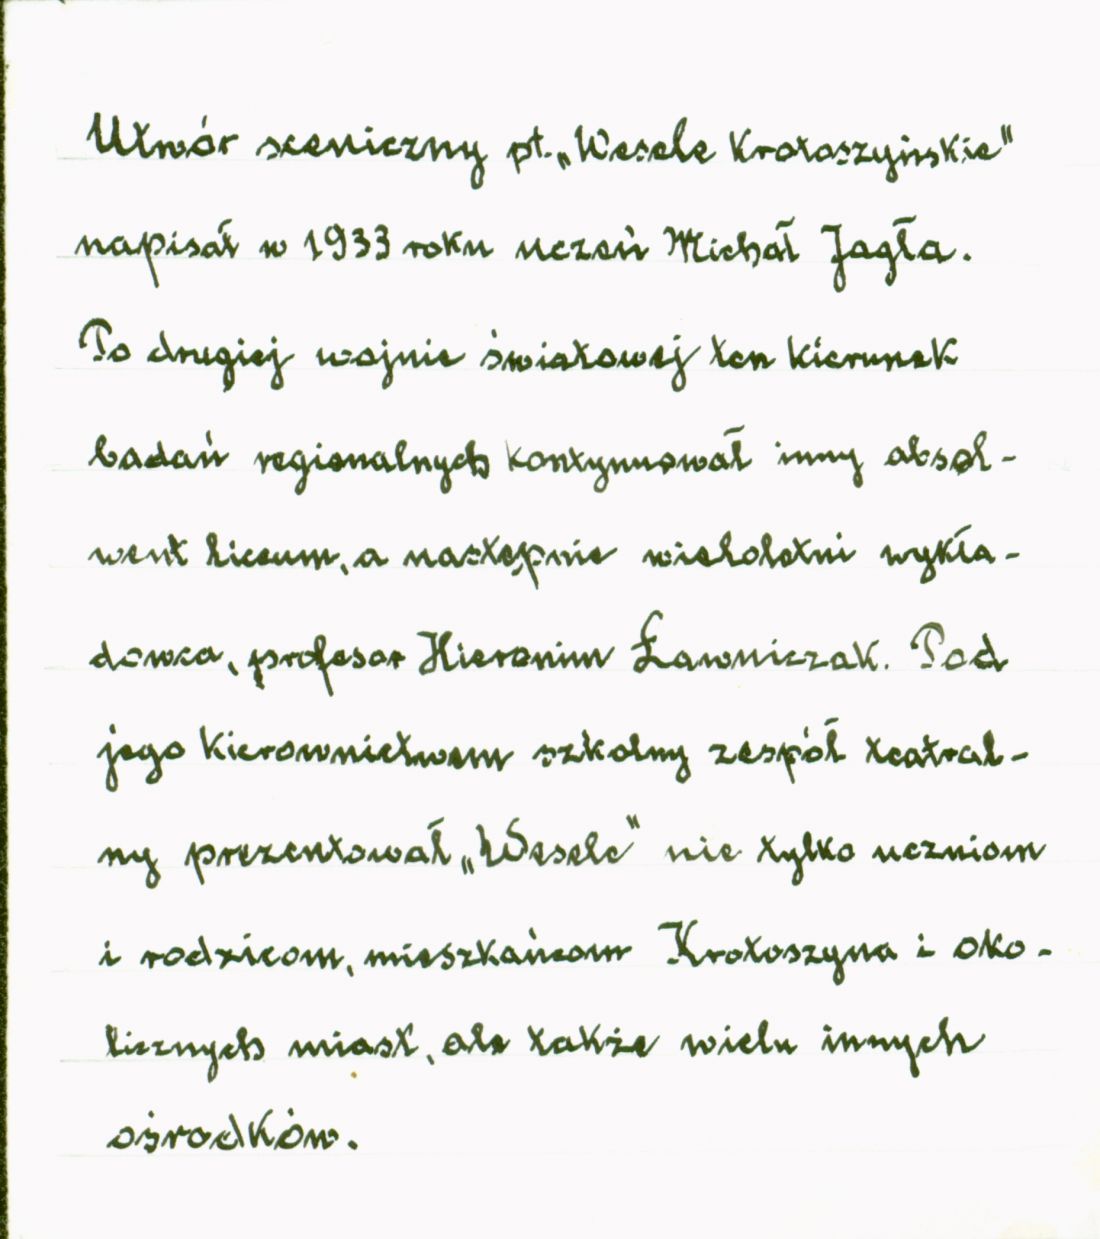 Utwór sceniczny pt. „Wesele Krotoszyńskie"
napisał w 1933 roku uczeń Michał Jagła.
Po drugiej wojnie światowej ten kierunek
badań regionalnych kontynuował inny absol-
went liceum, a następnie wieloletni wykła-
dowca, profesor Hieronim Ławniczak. Pod
jego kierownictwem szkolny zespół teatral-
ny prezentował „Wesele" nie tylko uczniom
i rodzicom, mieszkańcom Krotoszyna i oko-
licznych miast, ale także wielu innych
ośrodków.